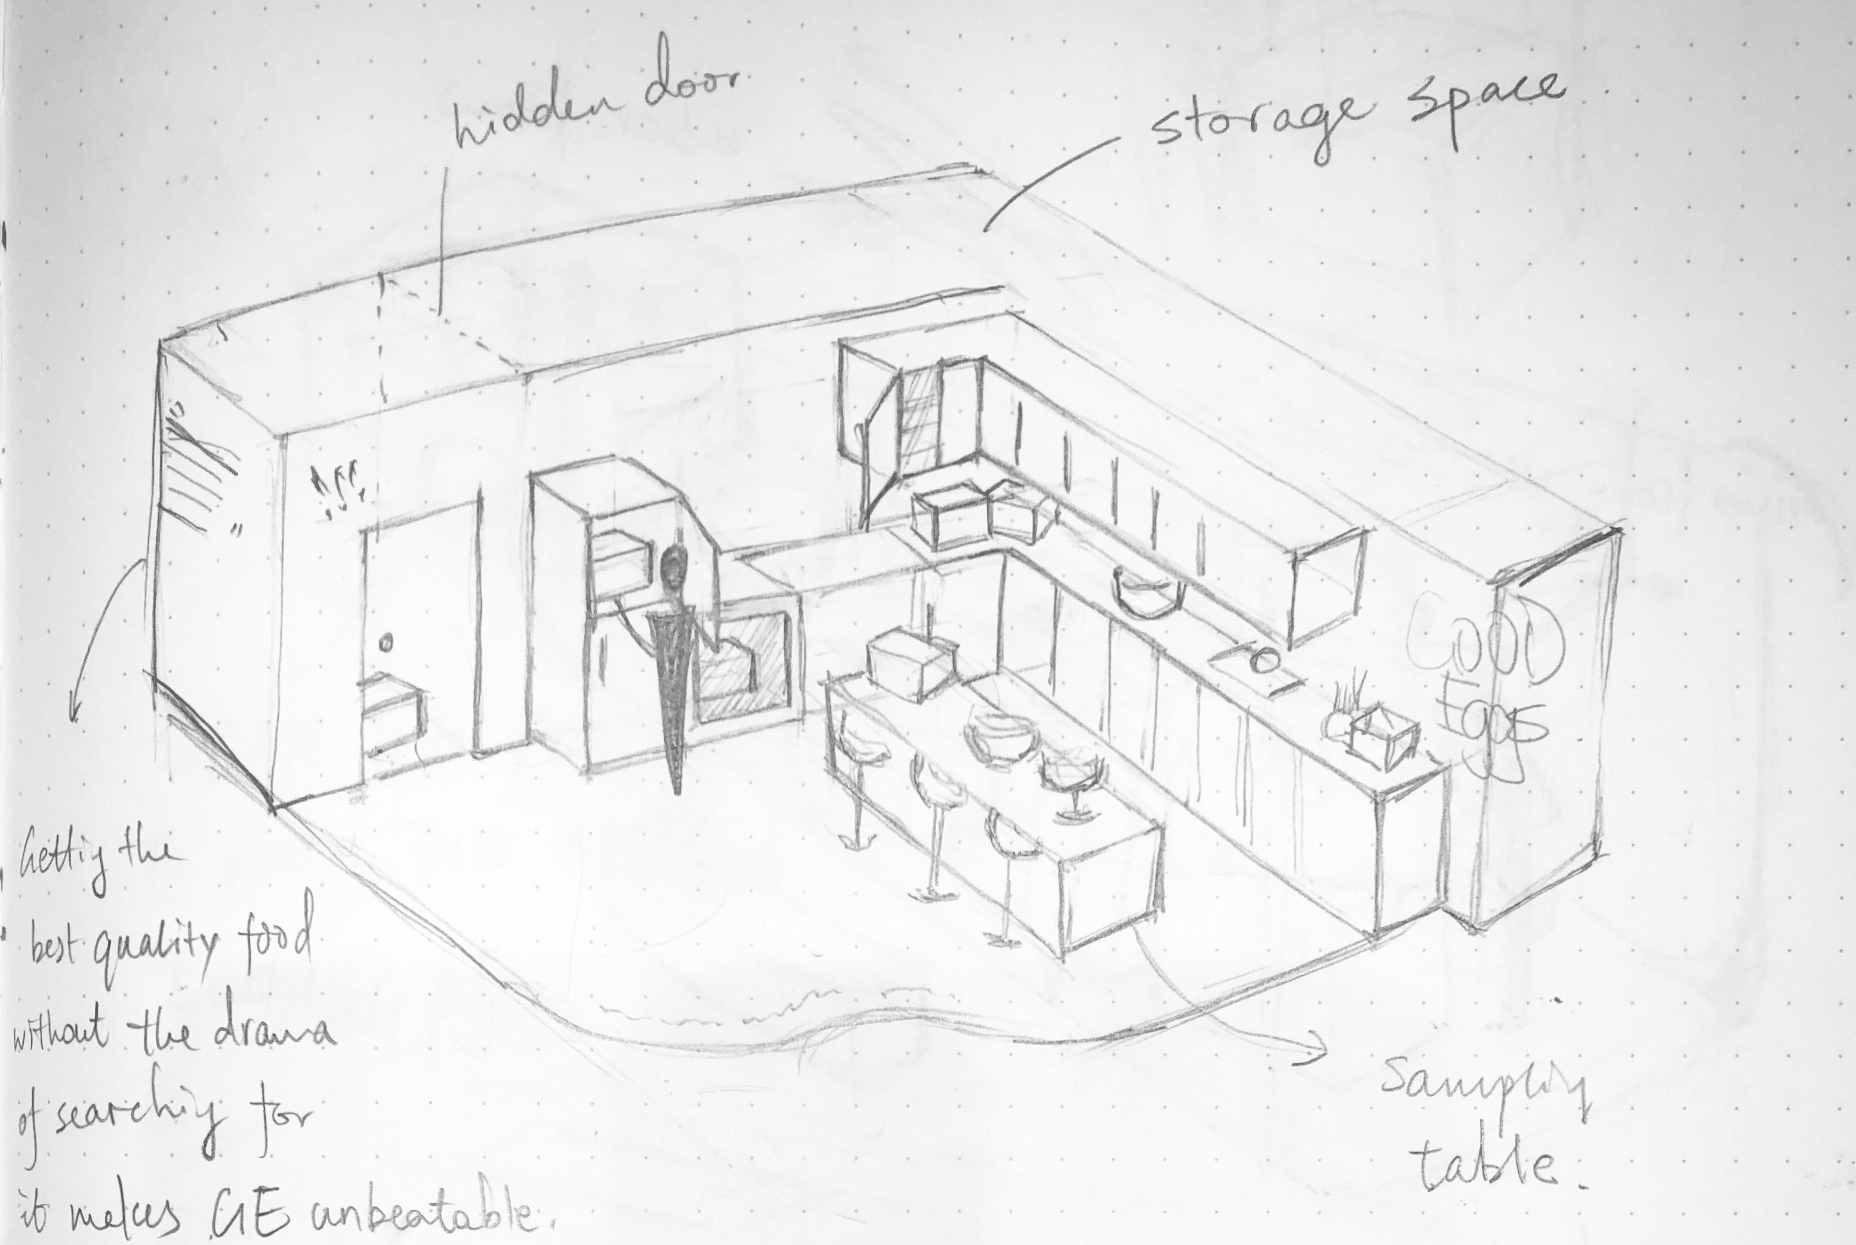 hidden door
storage space
GOOD
Eggs
Getting the
best quality food
without the drama
of searching for
it makes GE unbeatable.
Sampling
table.